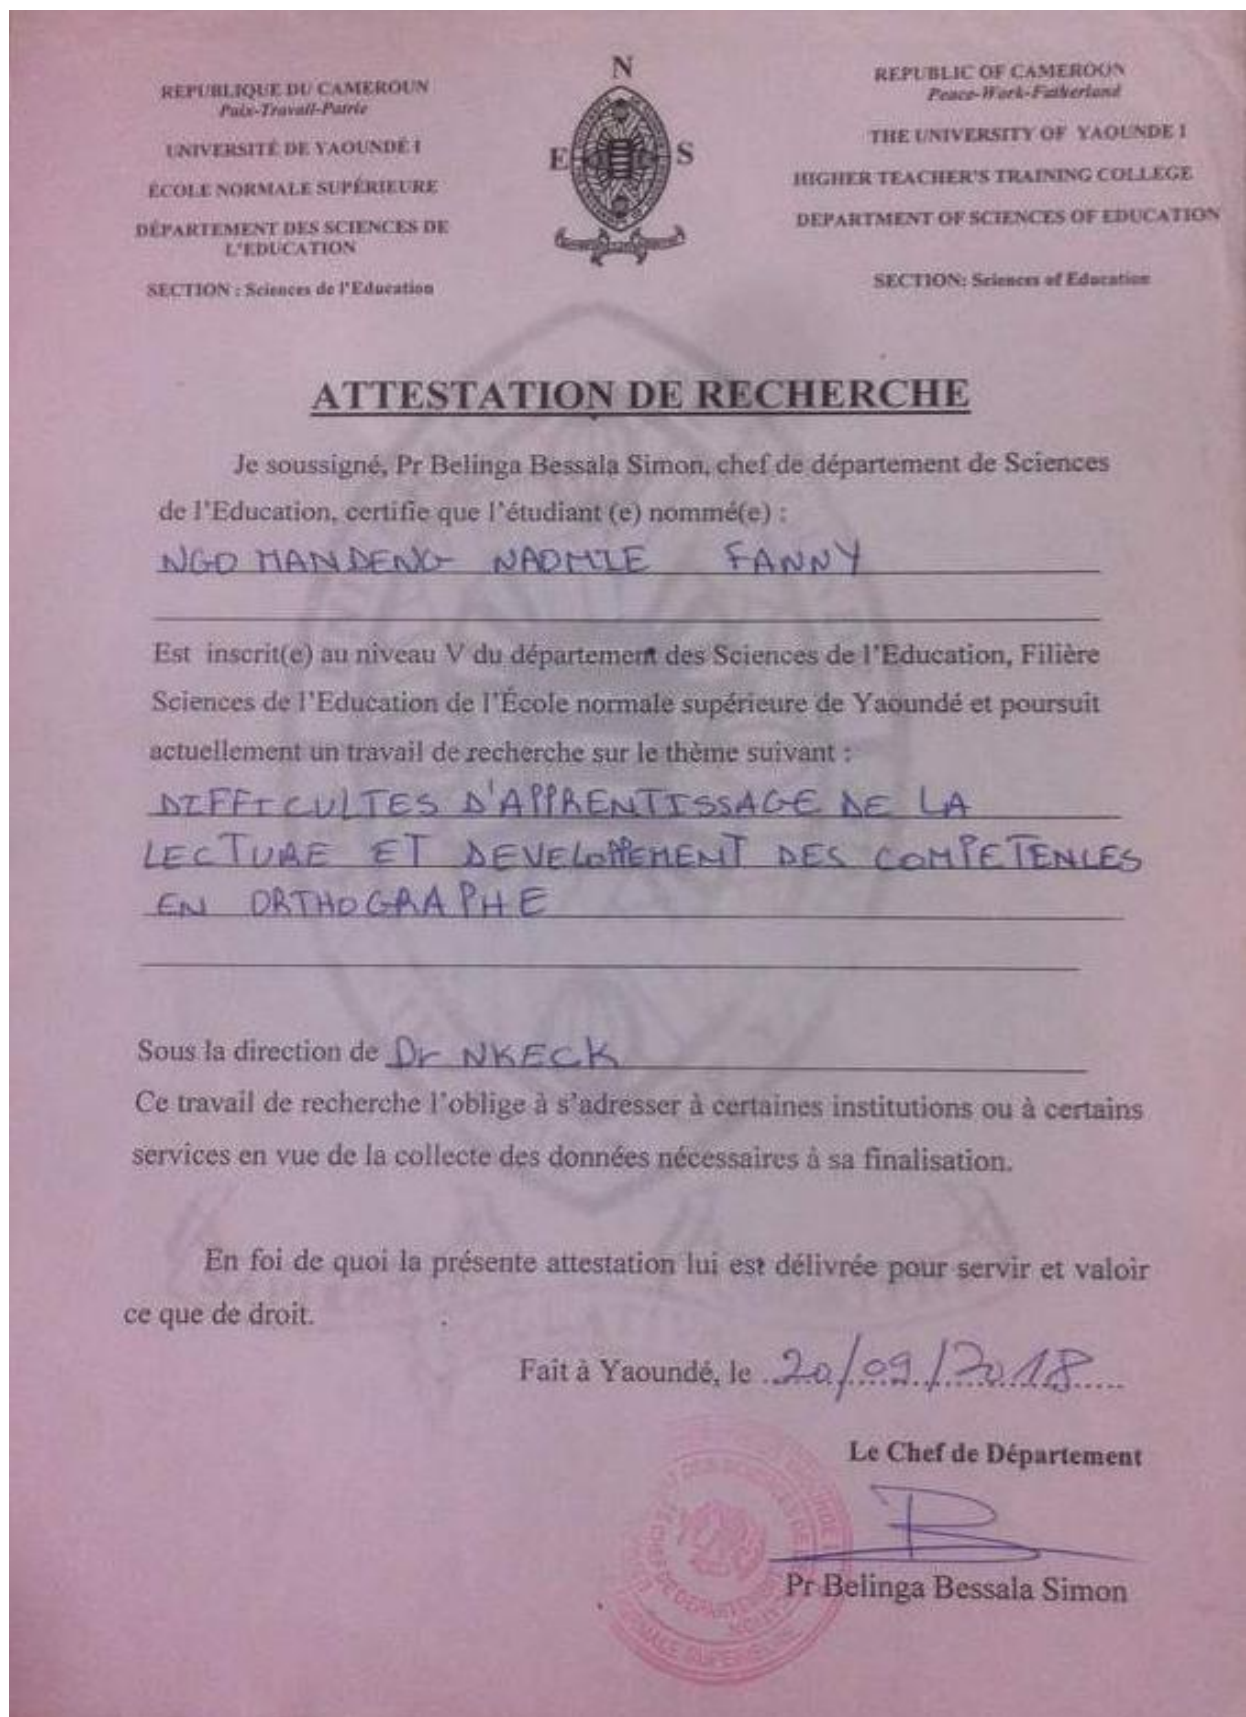 REPUBLIQUE DU CAMEROUN
Paix-Travail-Patrie
UNIVERSITÉ DE YAOUNDÉ I
ÉCOLE NORMALE SUPÉRIEURE
DÉPARTEMENT DES SCIENCES DE
L'EDUCATION
SECTION : Sciences de l'Education
N
E S
REPUBLIC OF CAMEROON
Peace-Work-Fatherland
THE UNIVERSITY OF YAOUNDE I
HIGHER TEACHER'S TRAINING COLLEGE
DEPARTMENT OF SCIENCES OF EDUCATION
SECTION: Sciences of Education
ATTESTATION DE RECHERCHE
Je soussigné, Pr Belinga Bessala Simon, chef de département de Sciences
de l'Education, certifie que l'étudiant (e) nommé(e) :
NGO MANDENG NAOMIE FANNY
Est inscrit(e) au niveau V du département des Sciences de l'Education, Filière
Sciences de l'Education de l'École normale supérieure de Yaoundé et poursuit
actuellement un travail de recherche sur le thème suivant :
DIFFICULTES D'APPRENTISSAGE DE LA
LECTURE ET DEVELOPPEMENT DES COMPETENCES
EN ORTHOGRAPHE
Sous la direction de Dr NKECK
Ce travail de recherche l'oblige à s'adresser à certaines institutions ou à certains
services en vue de la collecte des données nécessaires à sa finalisation.
En foi de quoi la présente attestation lui est délivrée pour servir et valoir
ce que de droit.
Fait à Yaoundé, le 20/09/2018
Le Chef de Département
Pr Belinga Bessala Simon